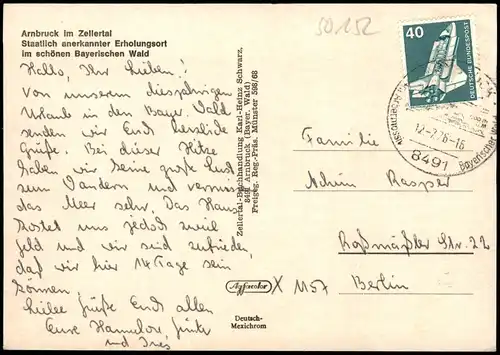 Arnbruck im Zellertal
Staatlich anerkannter Erholungsort
im schönen Bayerischen Wald
Hallo, Ihr Lieben!
Von unserem diesjährigen
Urlaub in den Bayer. Wald
senden wir Euch herzliche
Grüße. Bei dieser Hitze
haben wir keine große Lust
zum Wandern und vermissen
das Meer sehr. Das Haus
kostet uns jedoch weil
Geld und wir sind zufrieden,
daß wir hier 14 Tage sein
können.
Liebe Grüße Euch allen
Eure Hannelore,
und Ines
Zellertal-Buchhandlung Karl-Heinz Schwarz,
8491 Arnbruck (Bayer. Wald)
Freigeg. Reg.-Präs. Münster 598/68
Agfacolor
Deutsch-
Mexichrom
50152
40
DEUTSCHE BUNDESPOST
8491
Familie
Raspper
Roßmäßler Str. 22
X 1157 Berlin